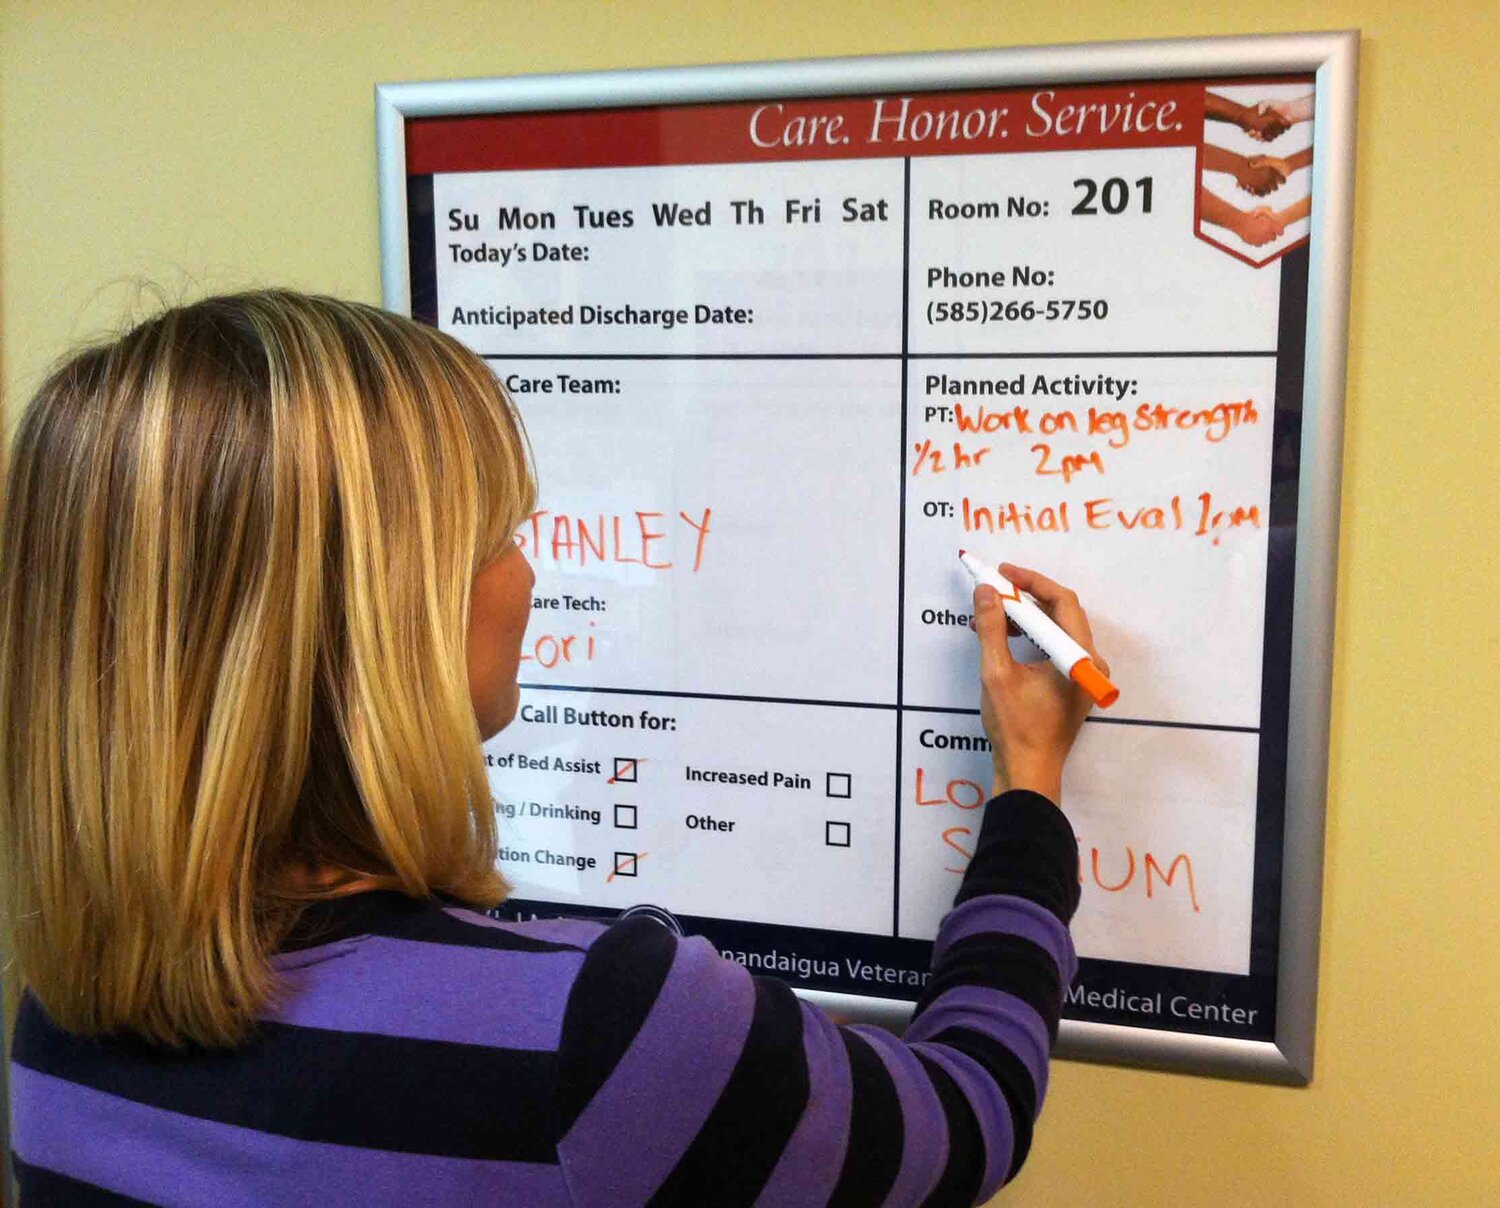 Care. Honor. Service.
Su Mon Tues Wed Th Fri Sat
Today's Date:
Anticipated Discharge Date:
Room No: 201
Phone No:
(585)266-5750
Care Team:
STANLEY
are Tech:
Lori
Planned Activity:
PT: Work on leg Strength
1/2 hr 2pm
OT: Initial Eval 1pm
Other
Call Button for:
t of Bed Assist
ng / Drinking
tion Change
Increased Pain
Other
Comm
LO
S IUM
nandaigua Veteran Medical Center